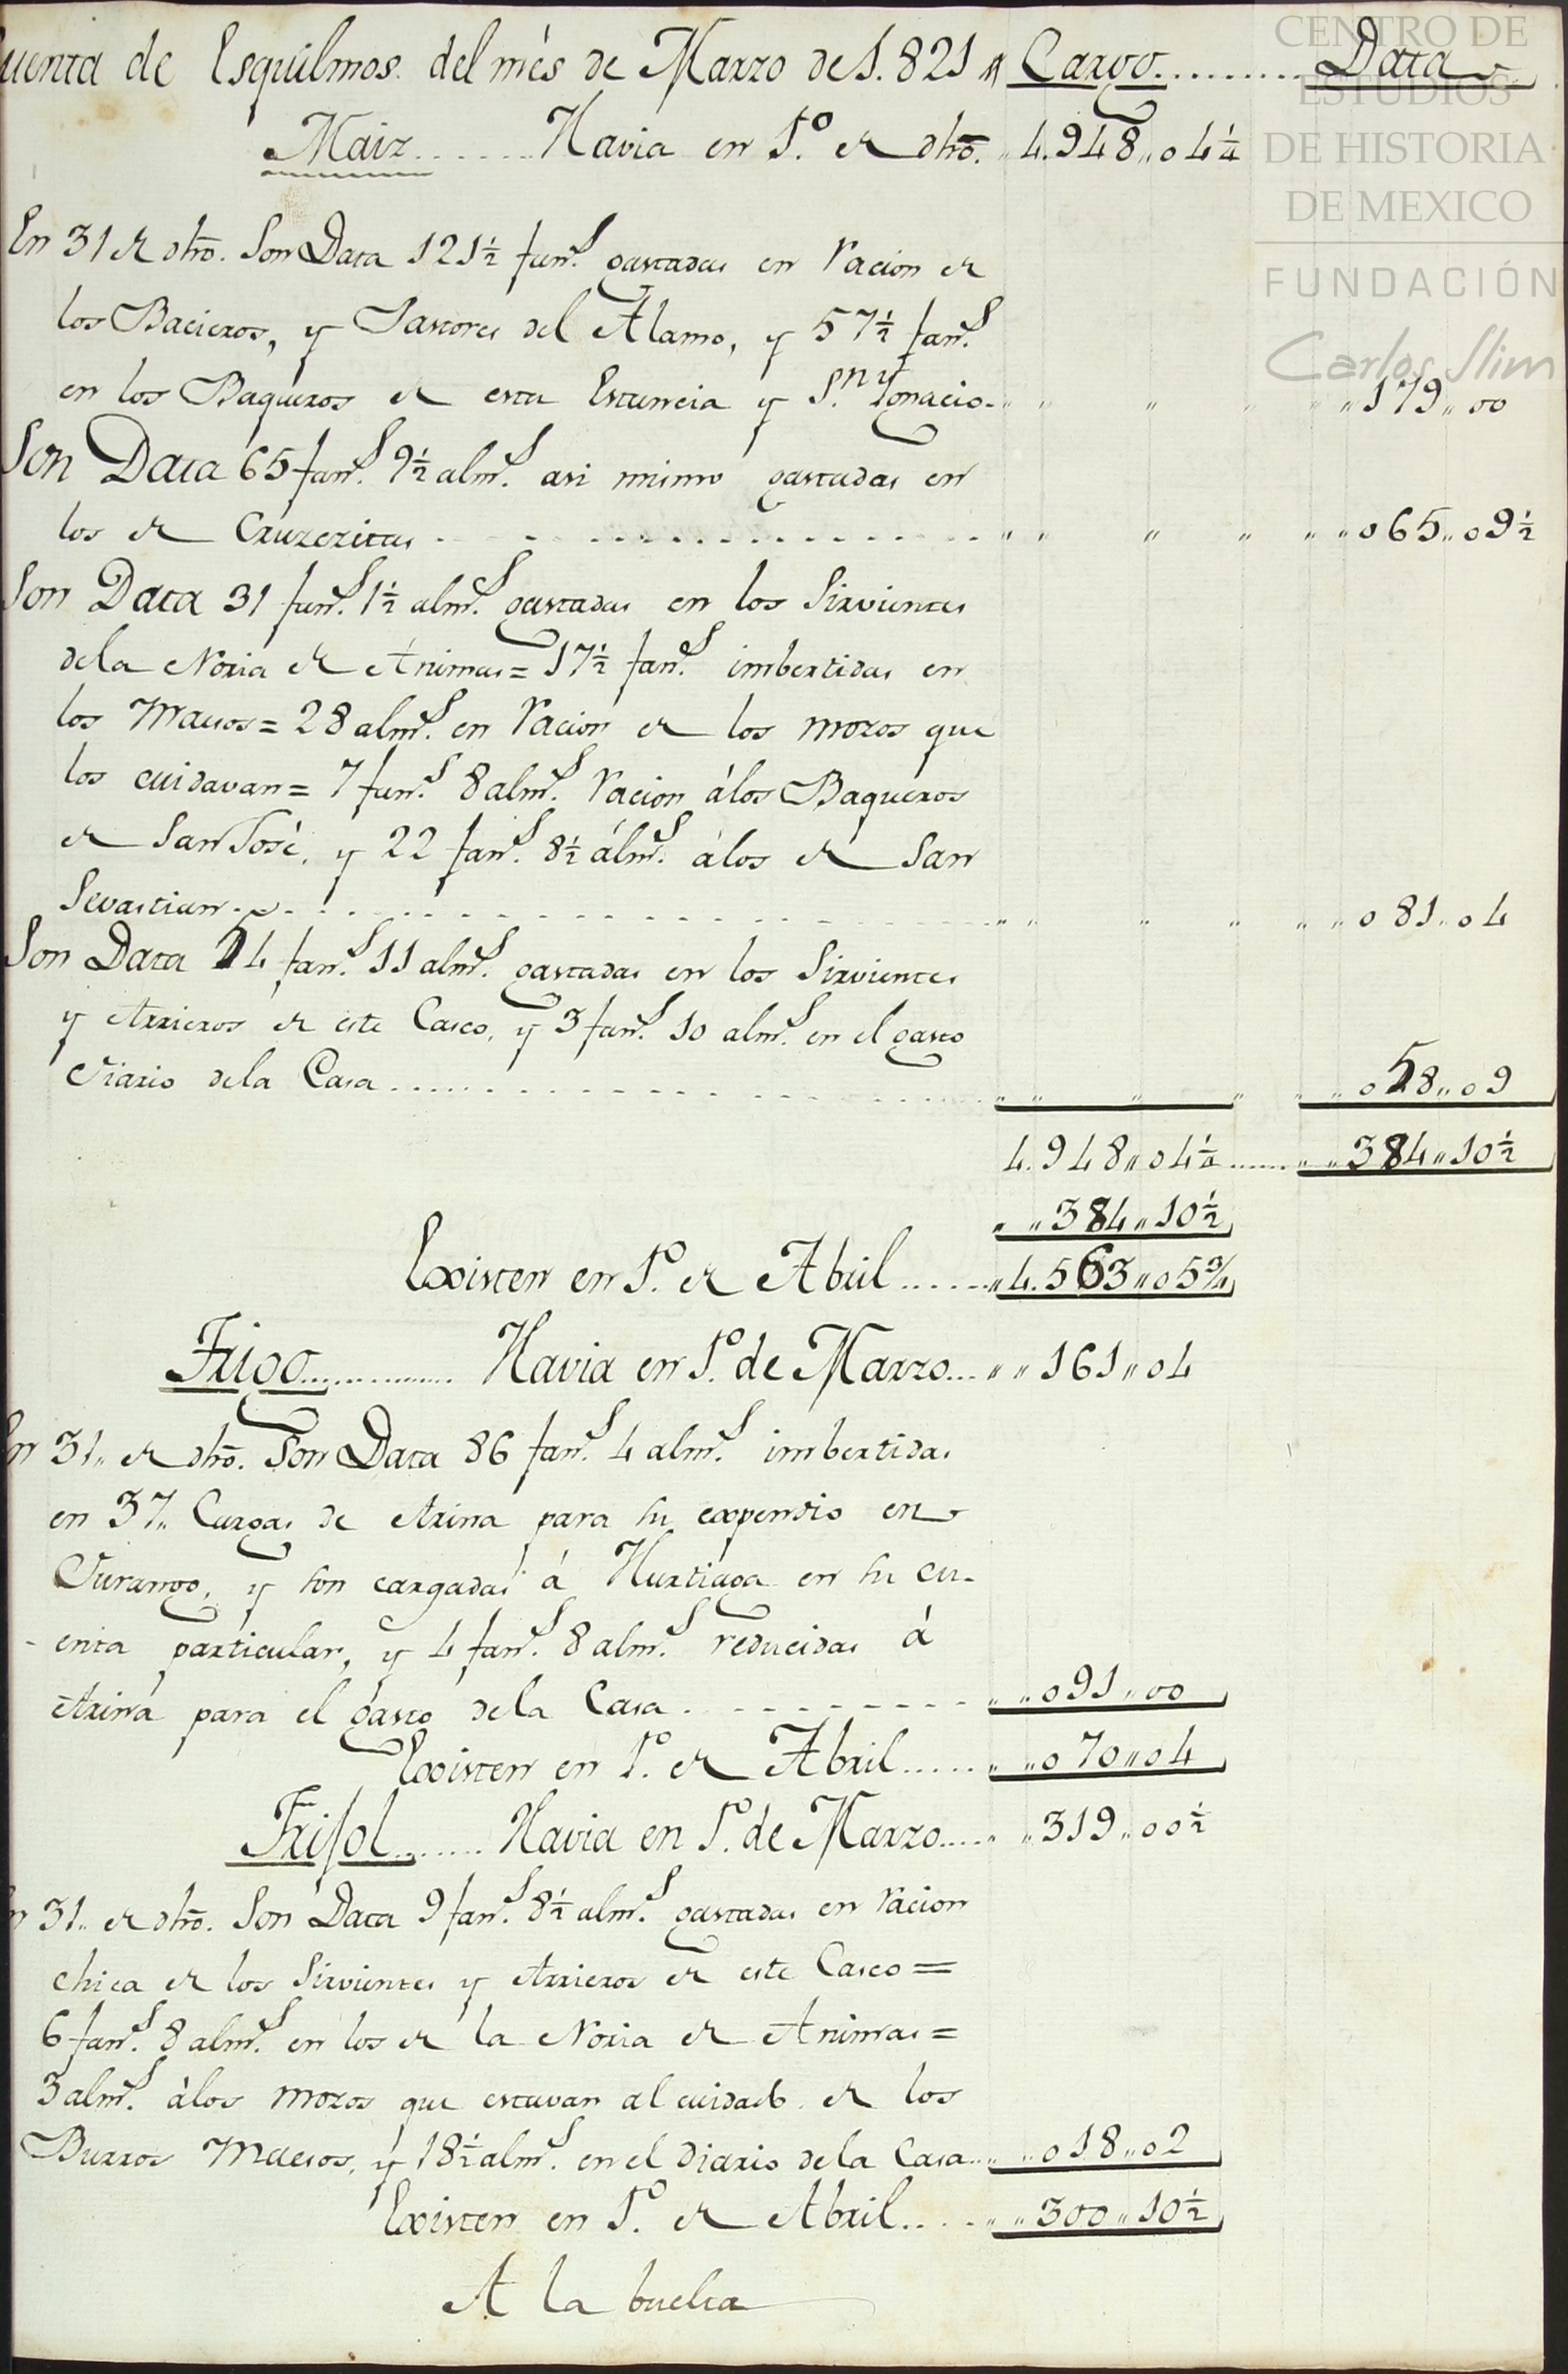 CENTRO DE
ESTUDIOS
DE HISTORIA
DE MEXICO
FUNDACIÓN
Carlos Slim
uenta de Esquilmos. del més de Marzo de 1.821 // Cargo.......... Data
Maiz....... Havia en 1.º de dho. „ 4.948„04¼
En 31 de dho. Son Data 121½ fan.s gastadas en racion de
los Bacieros, y Pastores del Alamo, y 57½ fan.s
en los Baqueros de esta Estancia y S.n Ygnacio- „ „ „ „ „ „179„00
Son Data 65 fan.s 9½ alm.s asi mismo gastadas en
los de Cruzezitas - - - - - „ „ „ „ „ „065„09½
Son Data 31 fan.s 1½ alm.s gastadas en los Sirvientes
dela Noria de Animas= 17½ fan.s imbertidas en
los Machos= 28 alm.s en racion de los mozos que
los cuidavan= 7 fan.s 8 alm.s racion álos Baqueros
de San José, y 22 fan.s 8½ álm.s álos de San
Sevastian - - - - - „ „ „ „ „ „081„04
Son Data 54 fan.s 11 alm.s gastadas en los Sirvientes
y Arrieros de este Casco, y 3 fan.s 10 alm.s en el gasto
Diario dela Casa........... „ „ „ „ „ „058„09
4.948„04¼....... „ „384„10½
„ „384„10½
Existen en 1.º de Abril......„4.563„05¾
Trigo.............. Havia en 1.º de Marzo... „ „161„04
En 31„ de dho. Son Data 86 fan.s 4 alm.s imbertidas
en 37„ Cargas de Arina para su expendio en
Durango, y son cargadas á Hurtiaga en su cu-
- enta particular, y 4 fan.s 8 alm.s reducidas á
Arina para el gasto dela Casa - - - - - „ „091„00
Existen en 1.º de Abril..... „ „070„04
Frisol....... Havia en 1.º de Marzo..... „319„00½
En 31„ de dho. Son Data 9 fan.s 8½ alm.s gastadas en racion
chica de los Sirvientes y Arrieros de este Casco=
6 fan.s 8 alm.s en los de la Noria de Animas=
3 alm.s álos mozos que estavan al cuidado de los
Burros Machos, y 18½ alm.s en el Diario dela Casa.. „ „018„02
Existen en 1.º de Abril..... „ „300„10½
A la buelta